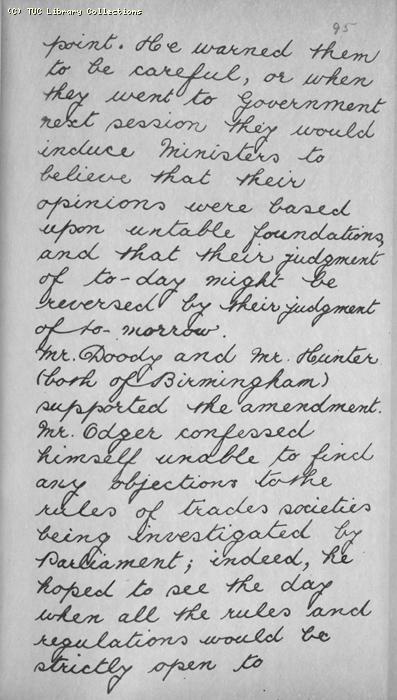 (C) TUC Library Collections
95
point. He warned them
to be careful, or when
they went to Government
next session they would
induce Ministers to
believe that their
opinions were based
upon untable foundations,
and that their judgment
of to-day might be
reversed by their judgment
of to-morrow.
Mr. Doody and Mr. Hunter
(both of Birmingham)
supported the amendment.
Mr. Odger confessed
himself unable to find
any objections to the
rules of trades societies
being investigated by
Parliament; indeed, he
hoped to see the day
when all the rules and
regulations would be
strictly open to